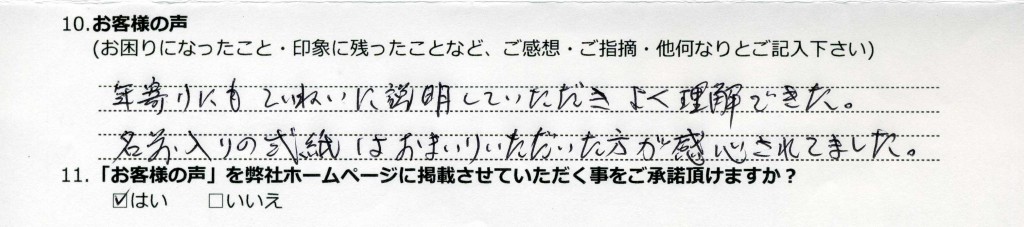 10.お客様の声
(お困りになったこと・印象に残ったことなど、ご感想・ご指摘・他何なりとご記入下さい)
年寄りにも ていねいに説明していただき よく理解できた。
名前入りの式紙はおまいりいただいた方が感心されてました。
11.「お客様の声」を弊社ホームページに掲載させていただく事をご承諾頂けますか？
☑はい □いいえ